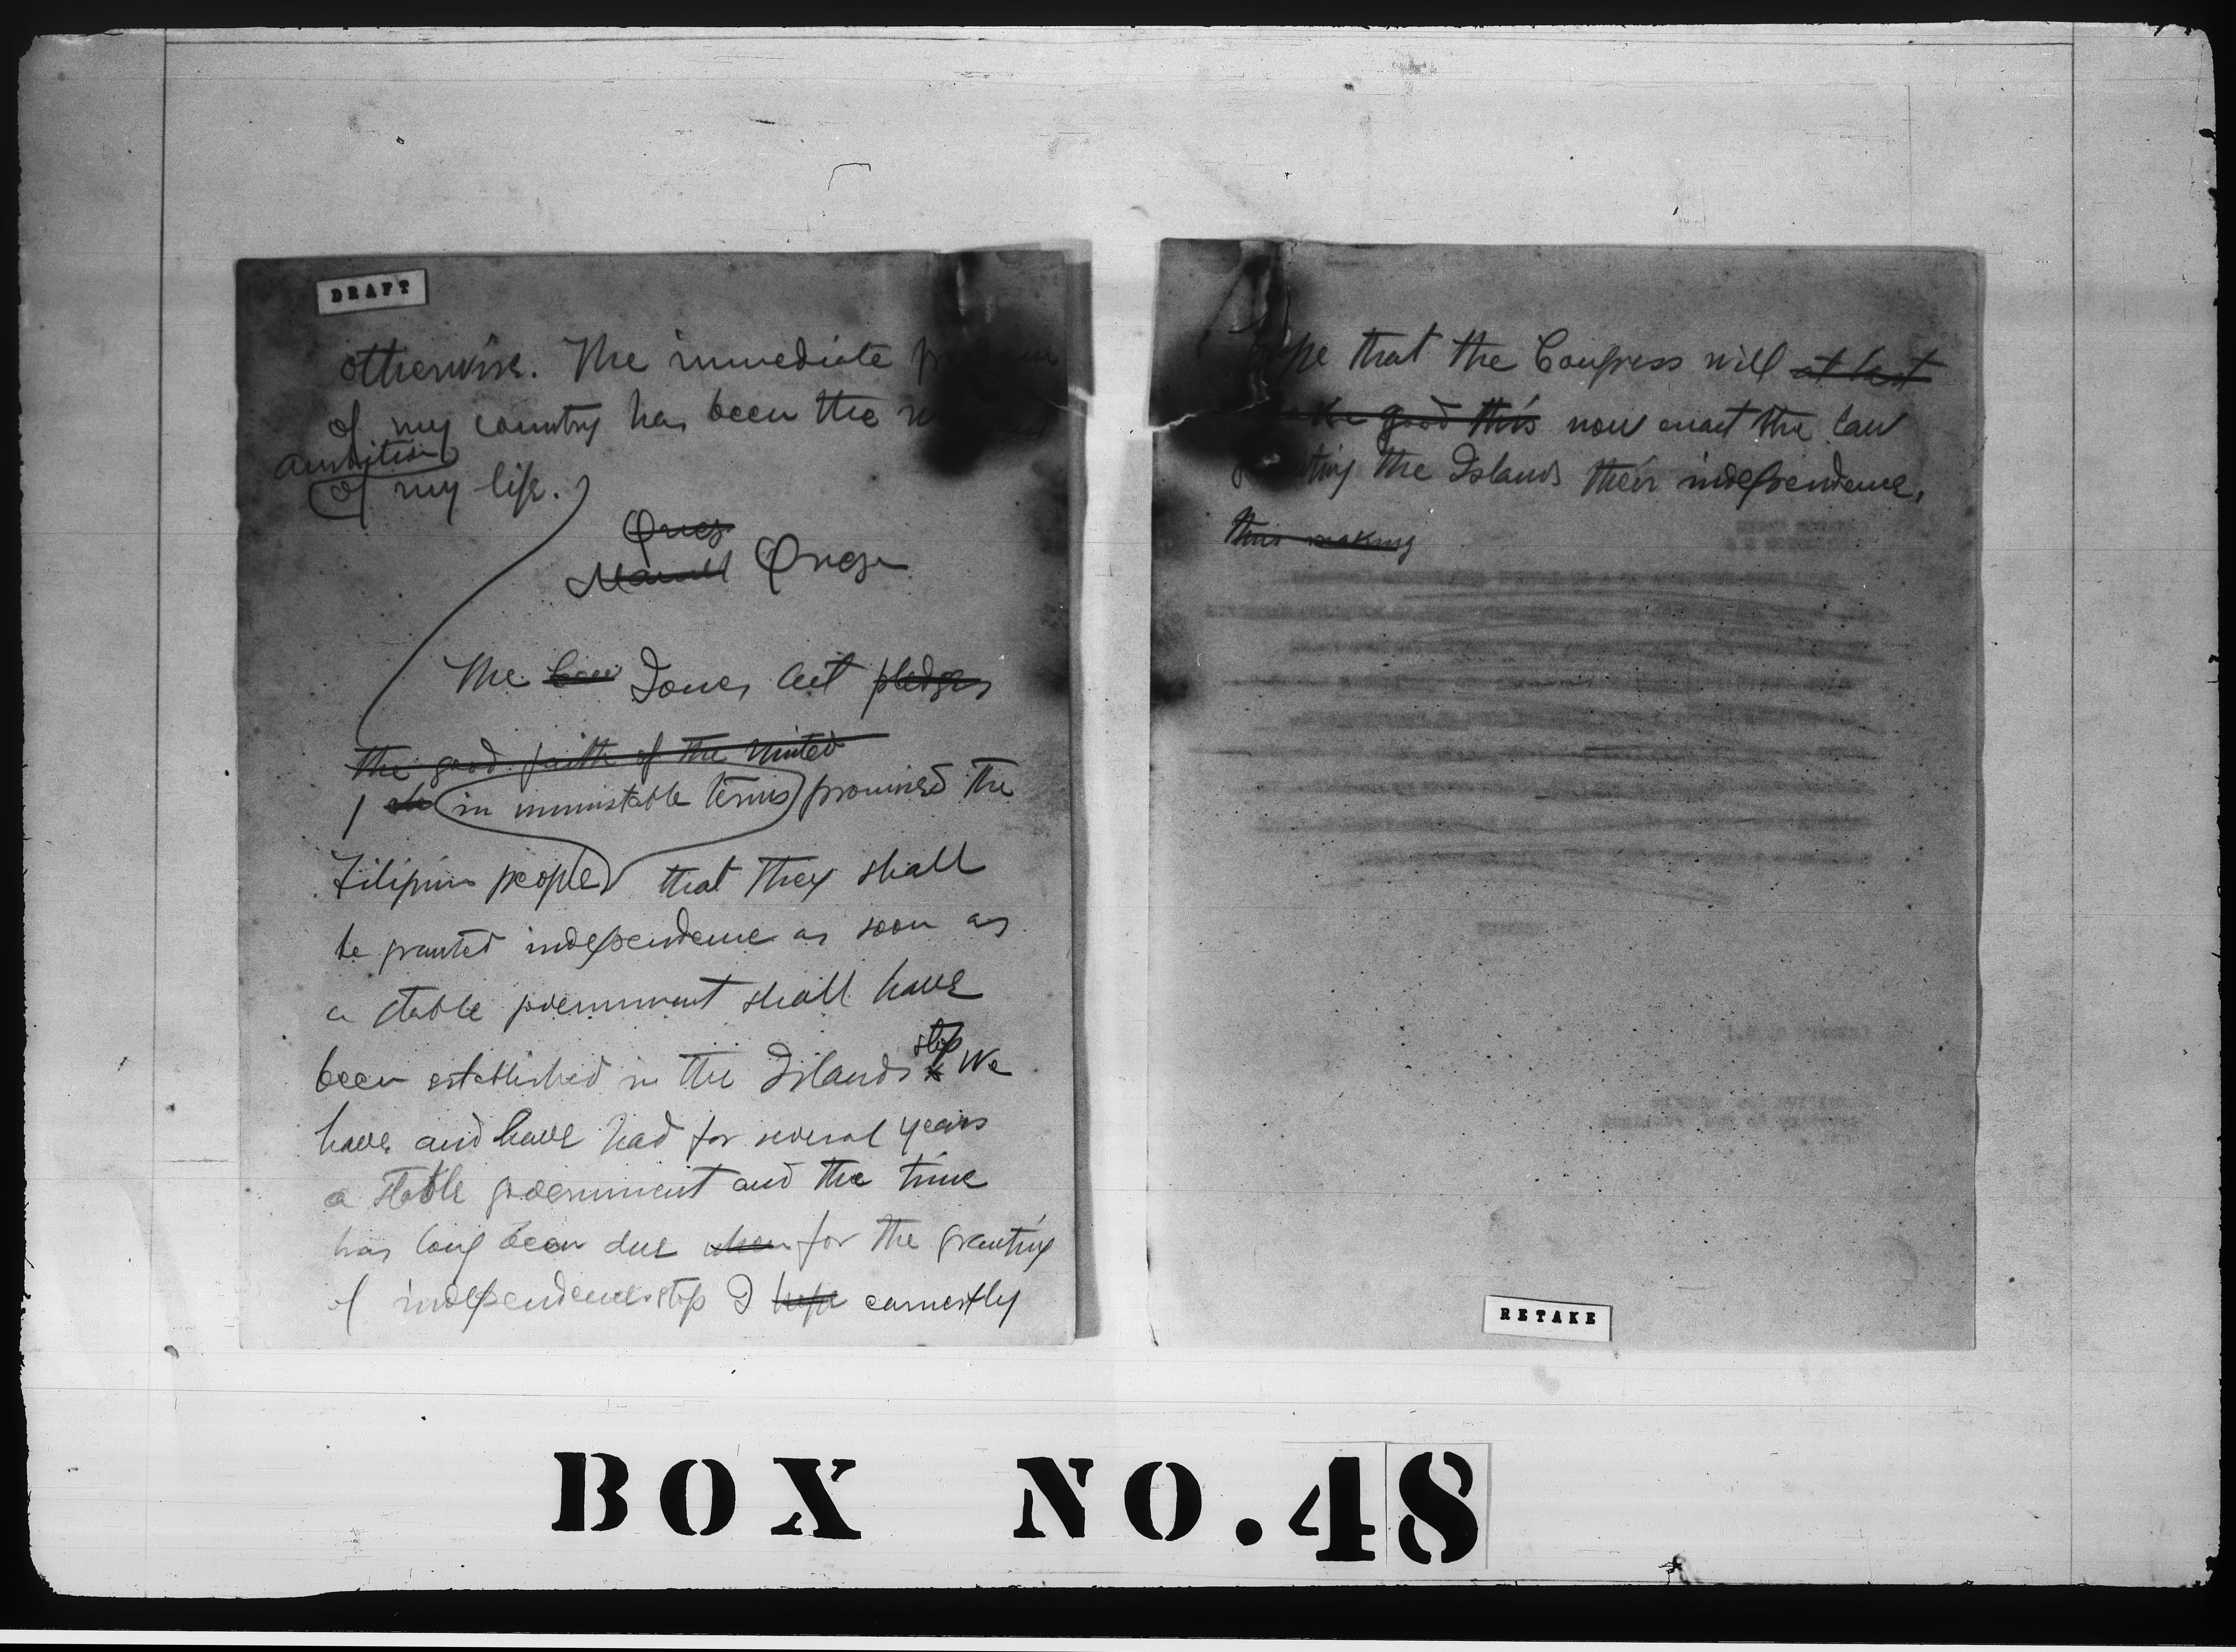 DRAFT
otherwise. The immediate
of my country has been the
ambition
of my life.
Quez
Manuel Quezon
The Jones Act pledges
the good faith of the United
in unmistable terms promised the
Filipino people that they shall
be granted independence as soon as
a stable government shall have
been established in the Islands stop We
have and have had for several years
a stable government and the time
has long been due when for the granting
of independence stop I hope earnestly
that the Congress will at last
good this now enact the law
the Islands their independence,
thus making
RETAKE
BOX NO. 48